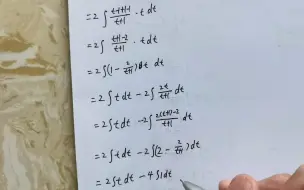 =2∫ t-1+1-1/t+1 · t dt
=2∫ t+1-2/t+1 · t dt
=2∫(1 - 2/t+1) t dt
=2∫t dt - 2∫ 2t/t+1 dt
=2∫t dt - 2∫ 2(t+1)-2/t+1 dt
=2∫t dt - 2∫(2 - 2/t+1) dt
=2∫t dt - 4∫1dt